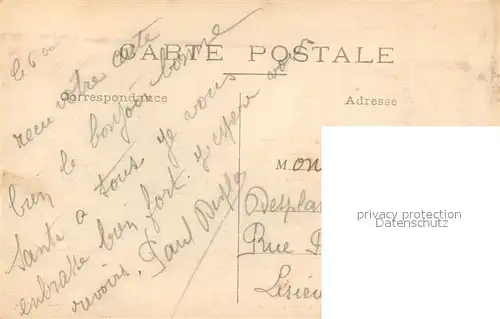 CARTE POSTALE
Correspondance
Adresse
Le 6
reçu votre carte
bien le bonjour bonne
Sante a tous je vous
enbrasse bien fort j'espere vous
revoir, Paul
M
Rue
Lisieu
privacy protection
Datenschutz